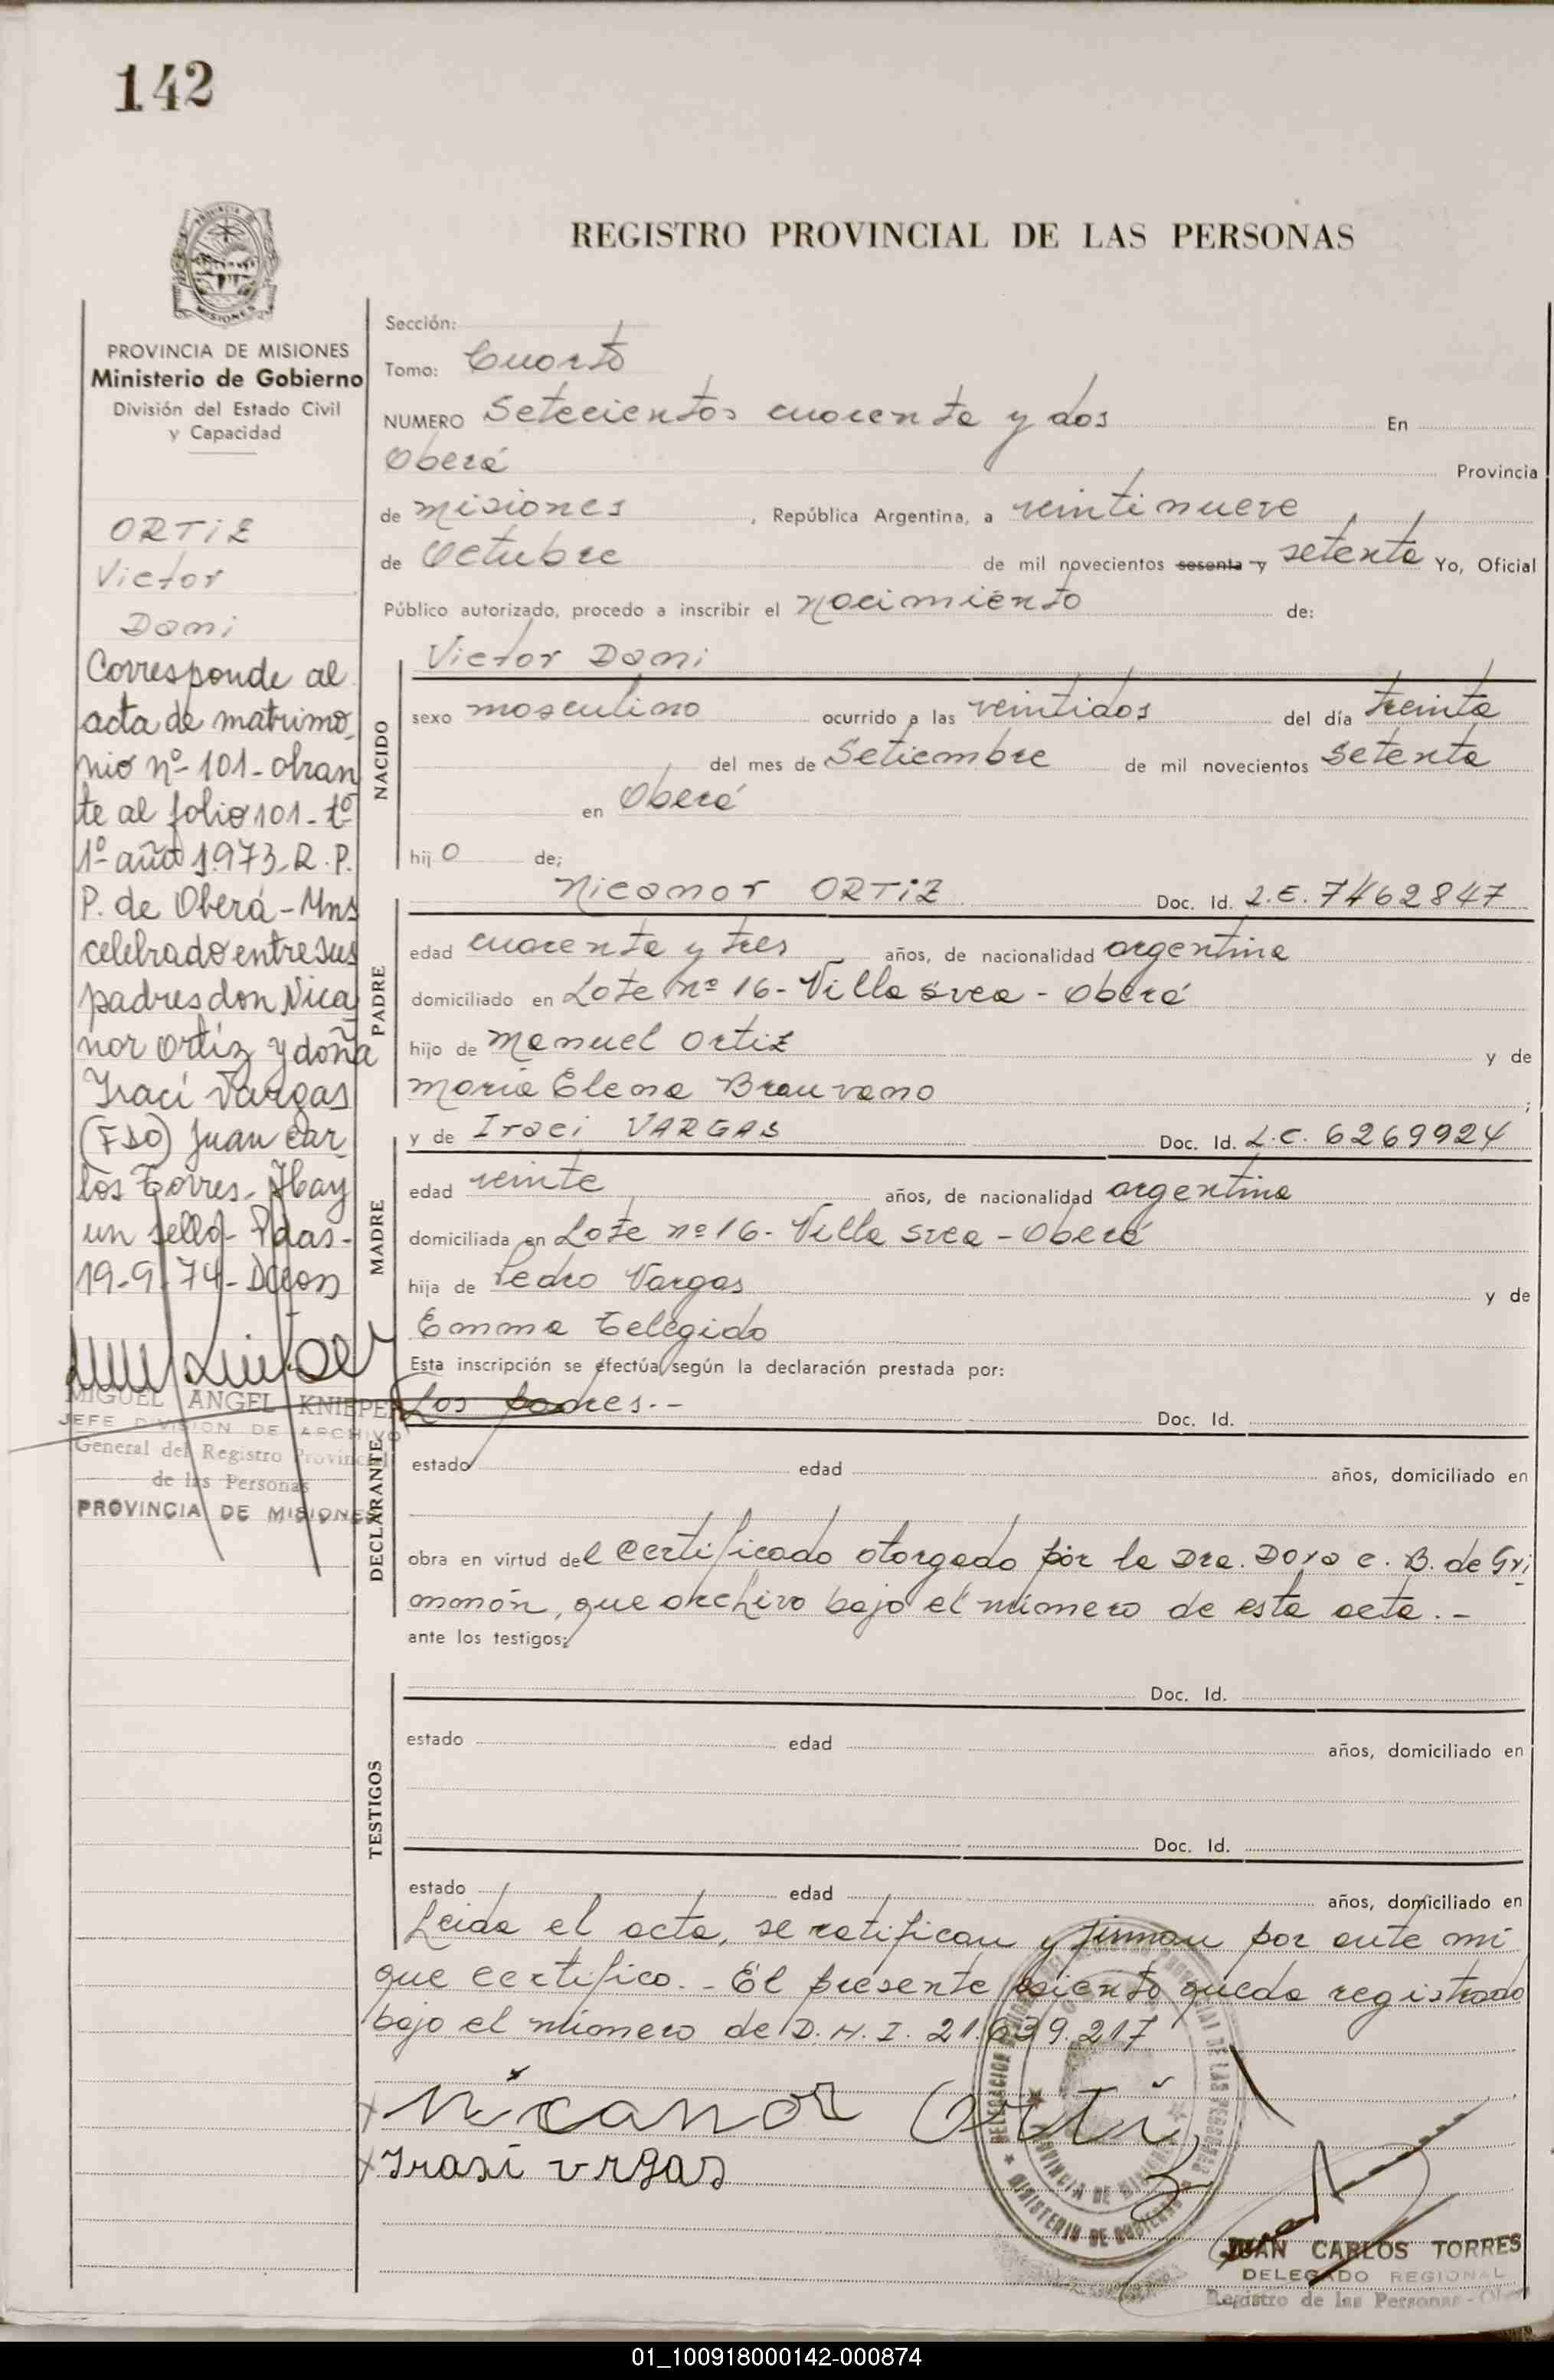 142
REGISTRO PROVINCIAL DE LAS PERSONAS
PROVINCIA DE MISIONES
Ministerio de Gobierno
División del Estado Civil
y Capacidad
ORTIZ
Victor
Dani
Corresponde al
acta de matrimo-
nio nº 101 - obran
te al folio 101 - tº
1º año 1.973. R. P.
P. de Oberá - Mns
celebrado entre sus
padres don Nica
nor Ortiz y doña
Iraci Vargas
(FDO) Juan Car-
los Torres. Hay
un sello - Pdas -
19-9-74 -
MIGUEL ANGEL KNIEPER
JEFE DIVISION DE ARCHIVO
General del Registro Provincial
de las Personas
PROVINCIA DE MISIONES
Sección:
Tomo: Cuarto
NUMERO Setecientos cuarenta y dos En
Oberá Provincia
de Misiones , República Argentina, a veintinueve
de Octubre de mil novecientos sesenta y setenta Yo, Oficial
Público autorizado, procedo a inscribir el nacimiento de:
Victor Dani
NACIDO
sexo masculino ocurrido a las veintidos del día treinta
del mes de Setiembre de mil novecientos setenta
en Oberá
hijo de;
PADRE
Nicanor ORTIZ Doc. Id. L.E. 7462847
edad cuarenta y tres años, de nacionalidad argentina
domiciliado en Lote nº 16 - Villa Svea - Oberá
hijo de Manuel Ortiz y de
Maria Elena Brauvano ;
MADRE
y de Iraci VARGAS Doc. Id. L.C. 6269924
edad veinte años, de nacionalidad argentina
domiciliada en Lote nº 16 - Villa Svea - Oberá
hija de Pedro Vargas y de
Emma Telegido
Esta inscripción se efectúa según la declaración prestada por:
DECLARANTE
Los padres.-- Doc. Id.
estado edad años, domiciliado en
obra en virtud del certificado otorgado por la Dra. Dora C. B. de Gri
mmón, que archivo bajo el número de esta acta.-
ante los testigos:
TESTIGOS
Doc. Id.
estado edad años, domiciliado en
Doc. Id.
estado edad años, domiciliado en
Leida el acta, se ratifican y firman por ante mi
que certifico.- El presente asiento queda registrado
bajo el número de D.N.I. 21.639.217
x Nicanor Ortiz
x Irasi vrgas
MINISTERIO DE GOBIERNO
PROVINCIA DE MISIONES
JUAN CARLOS TORRES
DELEGADO REGIONAL
Registro de las Personas - Oberá
01_100918000142-000874